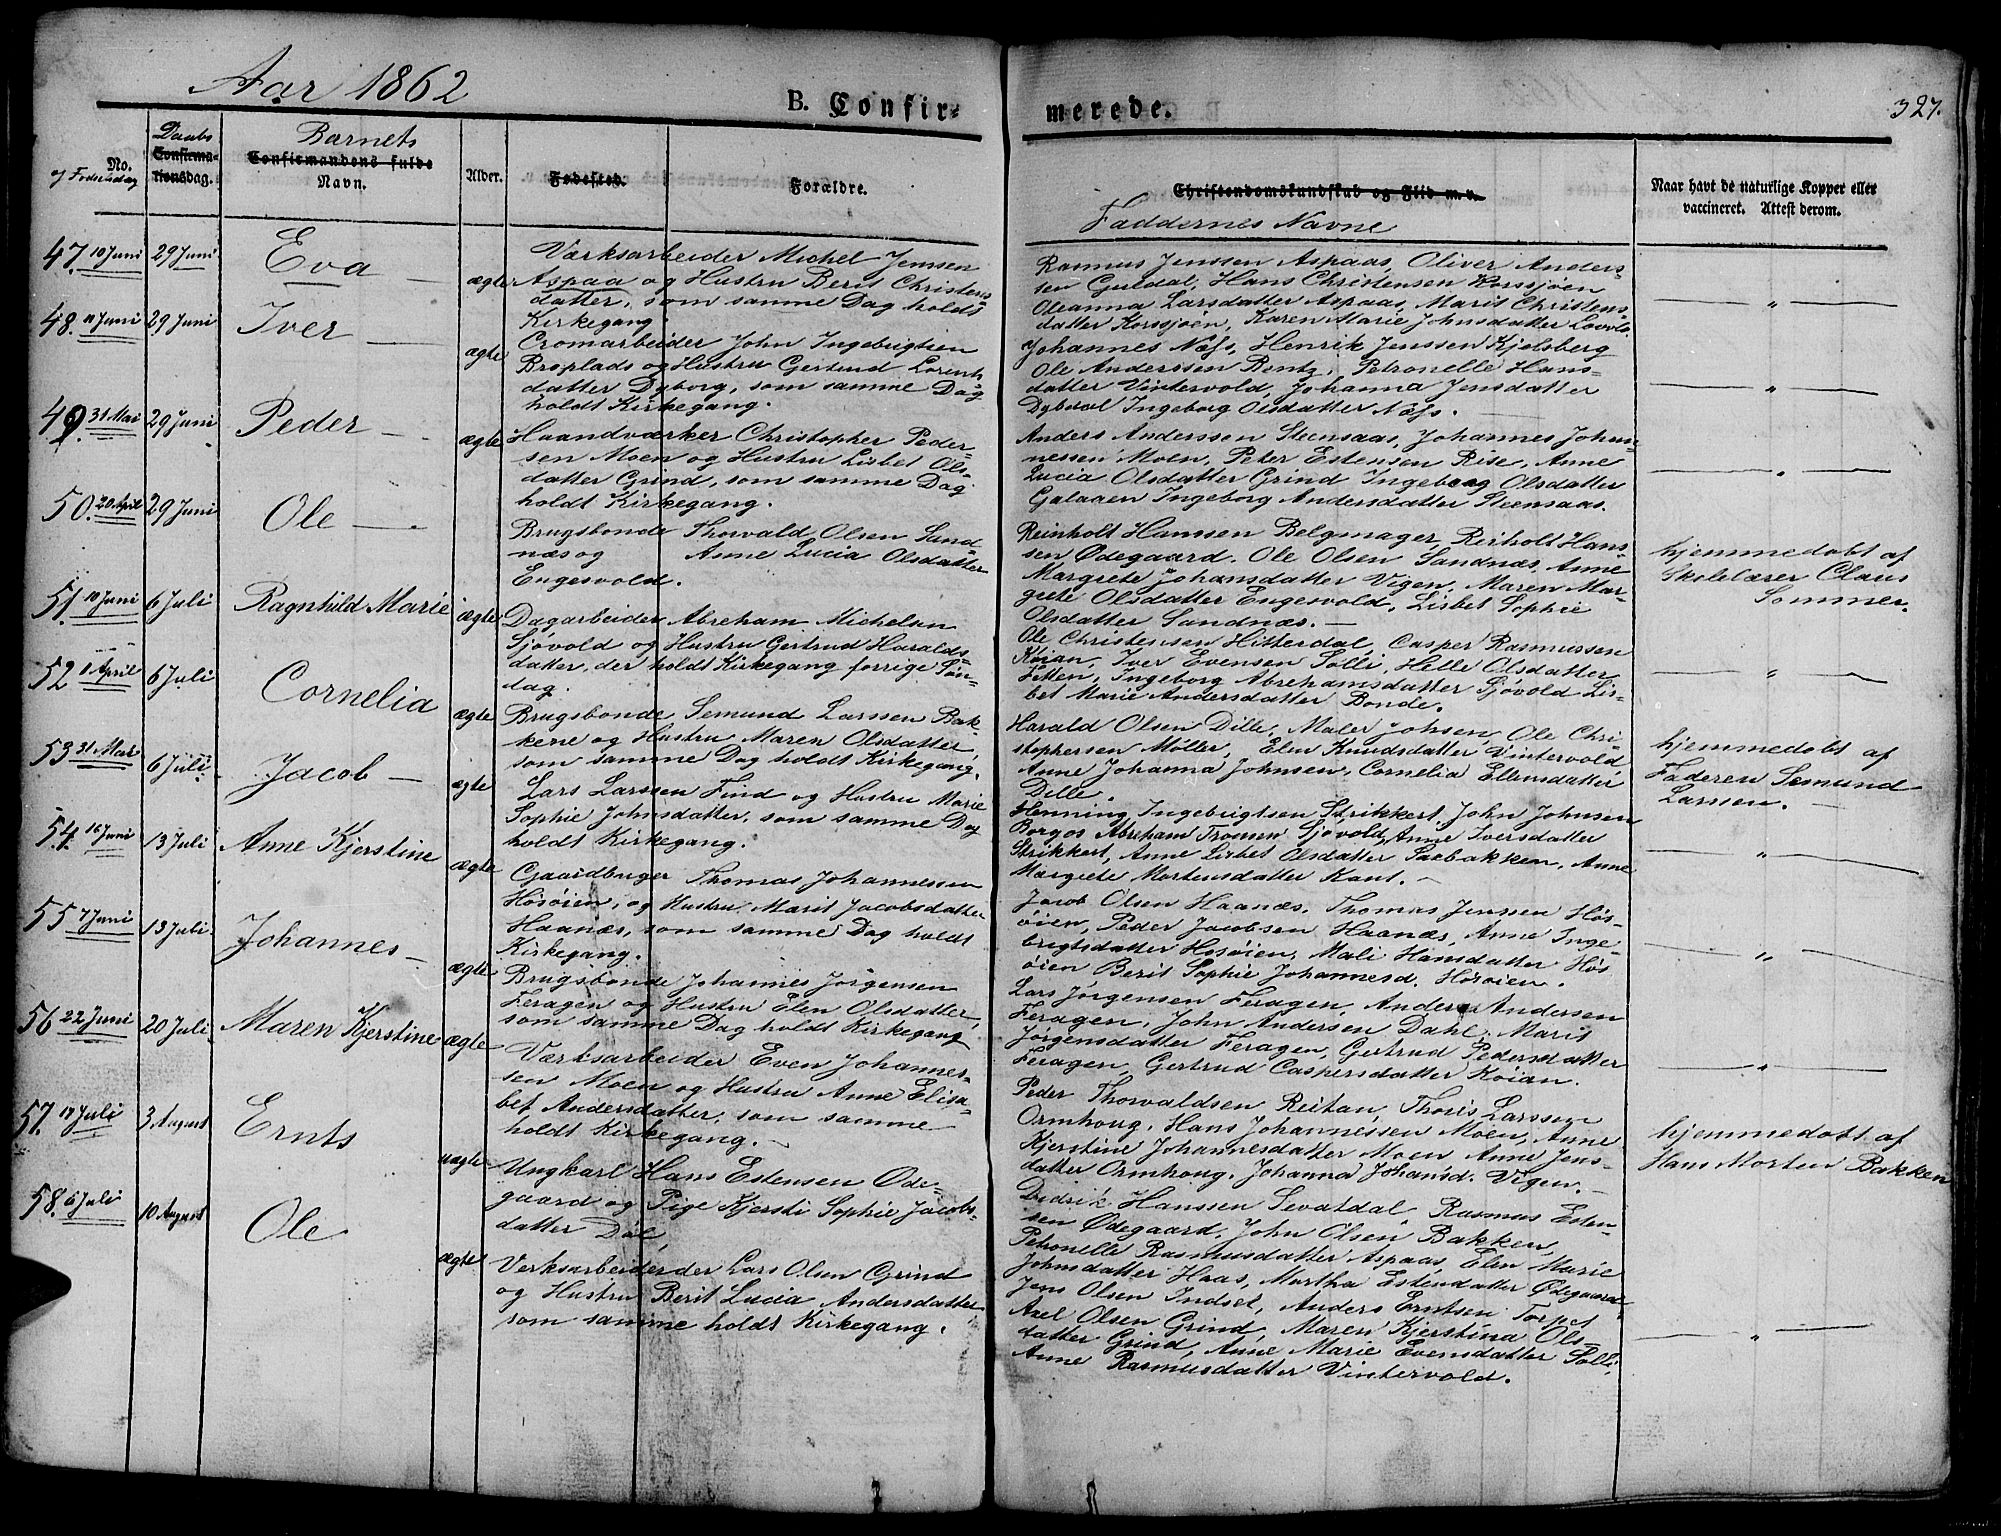 Aar 1862
B. Confir-
merede.
327.
No.
og Fødselsdag
Daabs
Confirma-
tionsdag.
Barnets
Confirmandens fulde
Navn.
Alder.
Fødested.
Forældre.
Christendomskundskab og Flid m. v.
Faddernes Navne
Naar havt de naturlige Kopper eller
vaccineret. Attest derom.
47. 10 Juni 29 Juni Eva ægte
Værksarbeider Michel Jemsen
Aspaa og Hustru Berit Christens-
datter, som samme Dag holdt
Kirkegang.
Rasmus Jenssen Aspaas, Oliver Anders-
sen Guldal, Hans Christensen Korssjøen
Oleanna Larsdatter Aspaas, Marit Christens-
datter Korssjöen, Karen Marie Johnsdatter
48. 11 Juni 29 Juni Iver ægte
Cromarbeider John Ingebrigtsen
Broplads og Hustru Gertrud Lorents
datter Dyborg, som samme Dag
holdt Kirkegang.
Johannes Næss, Henrik Jenssen Kjelsberg
Ole Anderssen Bentz, Petronelle Hans-
datter Vintervold, Johanna Jensdatter
Dybdal Ingeborg Olsdatter Næss.
49. 31 Mai 29 Juni Peder ægte
Haandværker Christopher Peder-
sen Moen og Hustru Lisbet Ols-
datter Grind, som samme Dag
holdt Kirkegang.
Anders Anderssen Steensaas, Johannes Johan-
nessen Moen, Peter Estensen Rise, Anne
Lucia Olsdatter Grind Ingeborg Olsdatter
Galaaen Ingeborg Andersdatter Steensaas.
50. 20 April 29 Juni Ole
Brugsbonde Thorvald Olsen Sand-
næs og Anne Lucia Olsdatter
Engesvold.
Reinholt Hanssen Belgmager, Reiholt Hans-
sen Ødegaard. Ole Olsen Sandnæs, Anne
Margrete Johansdatter Vigen, Maren Mar-
grete Olsdatter Engesvold, Lisbet Sophie
Olsdatter Sandnæs.
hjemmedøbt af
Skolelærer Claus
Sommer.
51. 10 Juni 6 Juli Ragnhild Marie ægte
Dagarbeider Abreham Michelsen
Sjövold og Hustru Gertrud Haralds-
datter, der holdt Kirkegang forrige Søn-
dag.
Ole Christensen Hitterdal, Casper Rasmussen
Koian, Iver Evensen Solli, Helle Olsdatter
Ingeborg Abrehamsdatter Sjövold Lis-
bet Marie Andersdatter Bonde.
52 1 April 6 Juli Cornelia ægte
Brugsbonde Semund Larssen Bak-
kene og Hustru Maren Olsdatter
som samme Dag holdt Kirkegang.
Harald Olsen Dille, Maler Johsen, Ole Chri-
stophersen Møller, Elen Knudsdatter Vintervold
Anne Johanna Johnsen, Cornelia Ellensdatter
Dille.
hjemmedøbt af
Faderen Semund
Larssen.
53 31 Mar 6 Juli Jacob ægte
Lars Larssen Find og Hustru Marie
Sophie Johnsdatter, som samme Dag
holdt Kirkegang.
Henning Ingebrigtsen Strikkert, John Johnsen
Borgos Abreham Tronsen Sjövold, Anne Iversdatter
Strikkert, Anne Lisbet Olsdatter Saebakken, Anne
Margrete Mortensdatter Kant.
54 16 Juni 13 Juli Anne Kjerstine ægte
Gaardbruger Thomas Johannessen
Høsøien, og Hustru Marit Jacobsdatter
Haanæs, som samme Dag holdt
Kirkegang.
Jacob Olsen Haanæs, Thomas Jenssen Høs-
øien, Peder Jacobsen Haanæs, Anne Inge
brigtsdatter Høsøien, Mali Hansdatter Høs
øien, Berit Sophie Johannesd. Høsøien.
55 7 Juni 13 Juli Johannes ægte
Brugsbonde Johannes Jörgensen
Feragen og Hustru Elen Olsdatter,
som samme Dag holdt Kirkegang
Lars Jørgensen Feragen, Anders Andersen
Feragen, John Andersen Dahl, Marit
Jørgensdatter Feragen, Gertrud Pedersdatter
Feragen, Gertrud Caspersdatter Koian.
56 22 Juni 20 Juli Maren Kjerstine ægte
Værksarbeider Even Johannes-
sen Moen og Hustru Anne Elisa-
bet Andersdatter, som samme
holdt Kirkegang.
Peder Thorvaldsen Reitan, Thoris Larssen
Ormhoug, Hans Johannessen Moen, Anne
Kjerstine Johannesdatter Moen Anne Jens-
datter Ormhoug, Johanna Johansd. Vigen.
57. 17 Juli 3 August Ernts uægte
Ungkarl Hans Estensen Øde-
gaard og Pige Kjersti Sophie Jacobs-
datter Døl
Didrik Hanssen Sevatdal, Rasmus Esten-
sen Ødegaard, John Olsen Bakken,
Petronelle Rasmusdatter Aspaas, Elen Marie
Johnsdatter Haas, Martha Estensdatter Ødegaard
hjemmedøbt af
Hans Morten Bakken
58. 6 Juli 10 August Ole ægte
Verksarbeiderder Lars Olsen Grind
og Hustru Berit Lucia Andersdatter
som samme holdt Kirkegang.
Jens Olsen Indset, Anders Erntsen Torpet
Axel Olsen Grind, Maren Kjerstina Ols-
datter Grind, Anne Marie Evensdatter Solli,
Anne Rasmusdatter Vintervold.